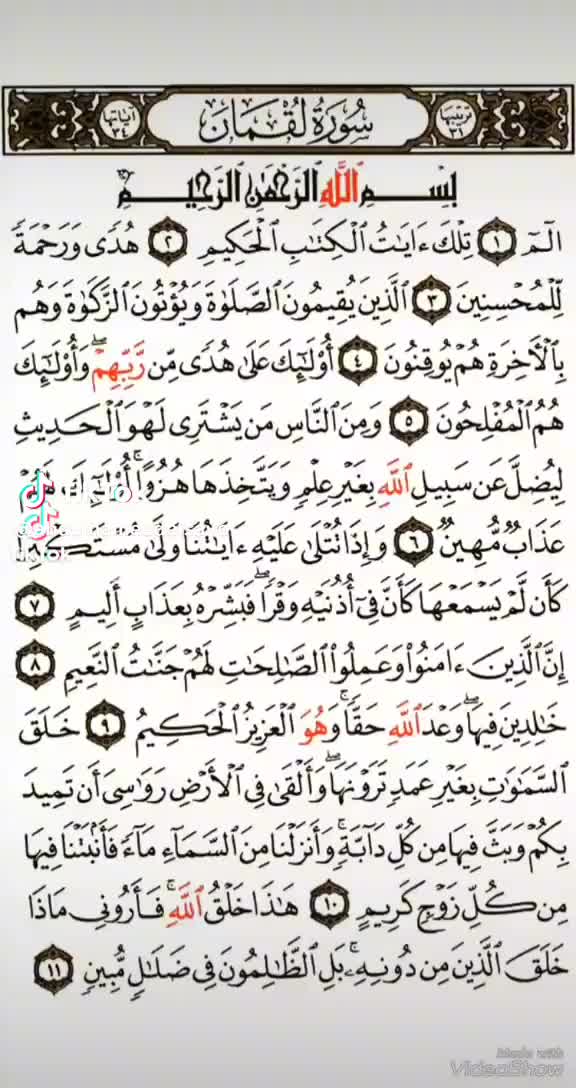 ترتيبها ٣١ سُورَةُ لُقْمَان آياتها ٣٤
بِسْمِ ٱللَّهِ ٱلرَّحْمَٰنِ ٱلرَّحِيمِ
الٓمٓ ١ تِلْكَ ءَايَٰتُ ٱلْكِتَٰبِ ٱلْحَكِيمِ ٢ هُدًى وَرَحْمَةً
لِّلْمُحْسِنِينَ ٣ ٱلَّذِينَ يُقِيمُونَ ٱلصَّلَوٰةَ وَيُؤْتُونَ ٱلزَّكَوٰةَ وَهُم
بِٱلْأَخِرَةِ هُمْ يُوقِنُونَ ٤ أُو۟لَٰٓئِكَ عَلَىٰ هُدًى مِّن رَّبِّهِمْ ۖ وَأُو۟لَٰٓئِكَ
هُمُ ٱلْمُفْلِحُونَ ٥ وَمِنَ ٱلنَّاسِ مَن يَشْتَرِى لَهْوَ ٱلْحَدِيثِ
لِيُضِلَّ عَن سَبِيلِ ٱللَّهِ بِغَيْرِ عِلْمٍ وَيَتَّخِذَهَا هُزُوًا ۚ أُو۟لَٰٓئِكَ لَهُمْ
عَذَابٌ مُّهِينٌ ٦ وَإِذَا تُتْلَىٰ عَلَيْهِ ءَايَٰتُنَا وَلَّىٰ مُسْتَكْبِرًا
كَأَن لَّمْ يَسْمَعْهَا كَأَنَّ فِىٓ أُذُنَيْهِ وَقْرًا ۖ فَبَشِّرْهُ بِعَذَابٍ أَلِيمٍ ٧
إِنَّ ٱلَّذِينَ ءَامَنُوا۟ وَعَمِلُوا۟ ٱلصَّٰلِحَٰتِ لَهُمْ جَنَّٰتُ ٱلنَّعِيمِ ٨
خَٰلِدِينَ فِيهَا ۖ وَعْدَ ٱللَّهِ حَقًّا ۚ وَهُوَ ٱلْعَزِيزُ ٱلْحَكِيمُ ٩ خَلَقَ
ٱلسَّمَٰوَٰتِ بِغَيْرِ عَمَدٍ تَرَوْنَهَا ۖ وَأَلْقَىٰ فِى ٱلْأَرْضِ رَوَٰسِىَ أَن تَمِيدَ
بِكُمْ وَبَثَّ فِيهَا مِن كُلِّ دَآبَّةٍ ۚ وَأَنزَلْنَا مِنَ ٱلسَّمَآءِ مَآءً فَأَنۢبَتْنَا فِيهَا
مِن كُلِّ زَوْجٍ كَرِيمٍ ١٠ هَٰذَا خَلْقُ ٱللَّهِ ۚ فَأَرُونِى مَاذَا
خَلَقَ ٱلَّذِينَ مِن دُونِهِۦ ۚ بَلِ ٱلظَّٰلِمُونَ فِى ضَلَٰلٍ مُّبِينٍ ١١
TikTok
TikTok
Made with
VideoShow